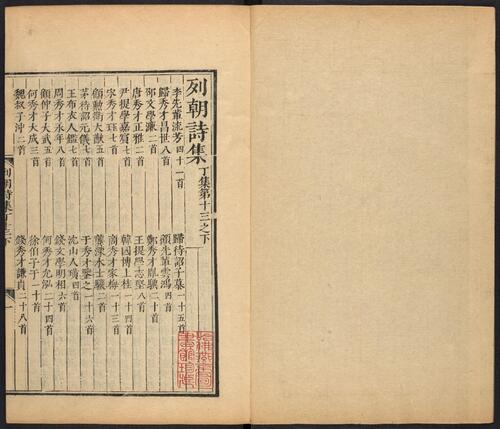 列朝詩集 丁集第十三之下
李先輩流芳四十一首 歸待詔子慕一十五首
歸秀才昌世八首 顧先輩雲鴻四首
文學濂二首 鄭秀才胤驥二十首
唐秀才正雅二首 王提學志堅八首
尹提學嘉賓七首 韓國博上桂一十四首
宋秀才珏七首 商秀才家梅一十三首
勳衛大猷五首 士驥二首
茅待詔元儀七首 于秀才鑒之一十六首
王布衣人鑑七首 沈山人璜四首
周秀才永年八首 錢文學明相六首
顧仲子大武五首 何秀才允泓二十四首
何秀才大成三首 徐伯子于一十首
魏叔子冲二首 錢秀才謙貞二十八首
列朝詩集丁十三下 一